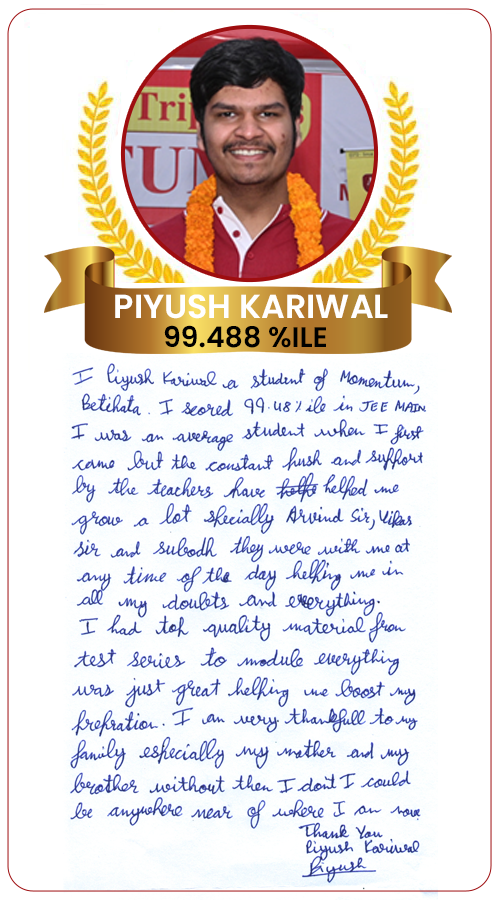 Trip
TUN
M
PIYUSH KARIWAL
99.488 %ILE
I Piyush Kariwal a student of Momentum,
Betihata. I scored 99.48% ile in JEE MAIN
I was an average student when I first
came but the constant push and support
by the teachers have helped me
grow a lot specially Arvind Sir, Vikas
sir and subodh they were with me at
any time of the day helping me in
all my doubts and everything.
I had top quality material from
test series to module everything
was just great helping me boost my
prepration. I am very thankfull to my
family especially my mother and my
brother without then I dont I could
be anywhere near of where I am now
Thank You
Piyush Kariwal
Piyush